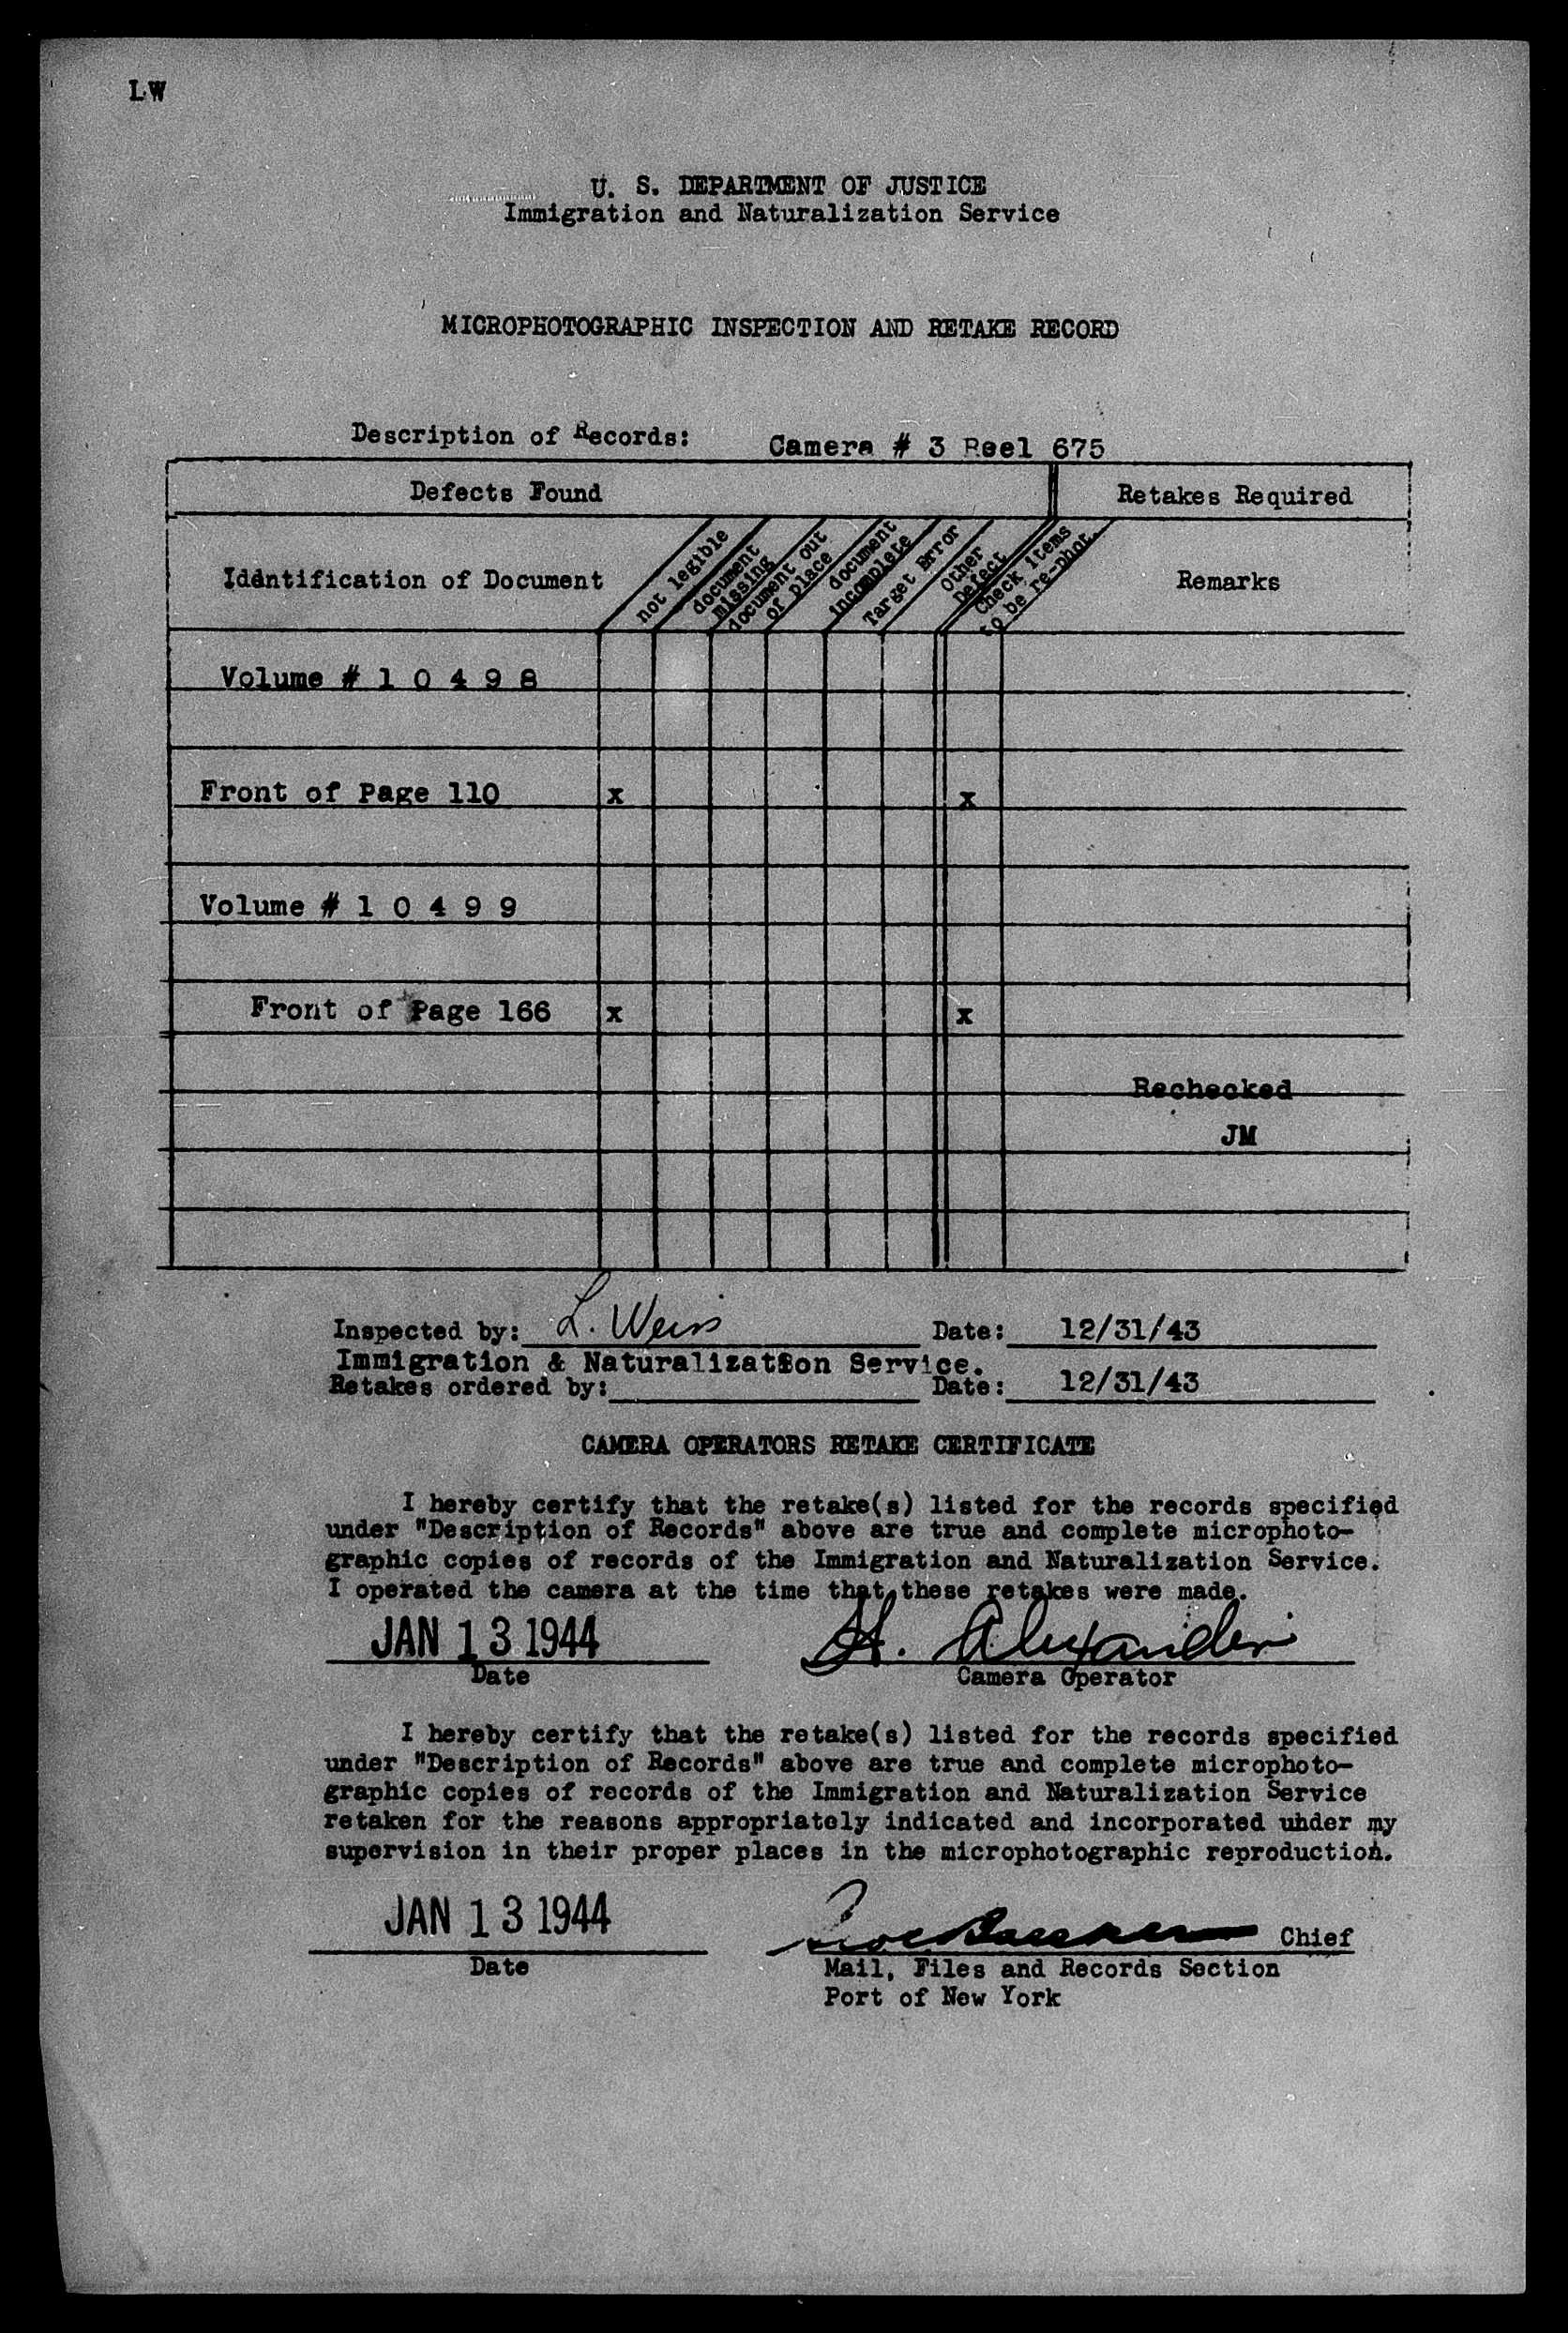 LW
U. S. DEPARTMENT OF JUSTICE
Immigration and Naturalization Service
MICROPHOTOGRAPHIC INSPECTION AND RETAKE RECORD
Description of Records: Camera # 3 Reel 675
Defects Found Retakes Required
Identification of Document
not legible
document missing
document out of place
document incomplete
Target Error
Other Defect
Check items to be re-phot.
Remarks
Volume # 1 0 4 9 8
Front of Page 110 x x
Volume # 1 0 4 9 9
Front of Page 166 x x
Rechecked
JM
Inspected by: L. Weiss Date: 12/31/43
Immigration & Naturalization Service.
Retakes ordered by: Date: 12/31/43
CAMERA OPERATORS RETAKE CERTIFICATE
I hereby certify that the retake(s) listed for the records specified
under "Description of Records" above are true and complete microphoto-
graphic copies of records of the Immigration and Naturalization Service.
I operated the camera at the time that these retakes were made.
JAN 13 1944 H. Alexander
Date Camera Operator
I hereby certify that the retake(s) listed for the records specified
under "Description of Records" above are true and complete microphoto-
graphic copies of records of the Immigration and Naturalization Service
retaken for the reasons appropriately indicated and incorporated under my
supervision in their proper places in the microphotographic reproduction.
JAN 13 1944 Chief
Date Mail, Files and Records Section
Port of New York